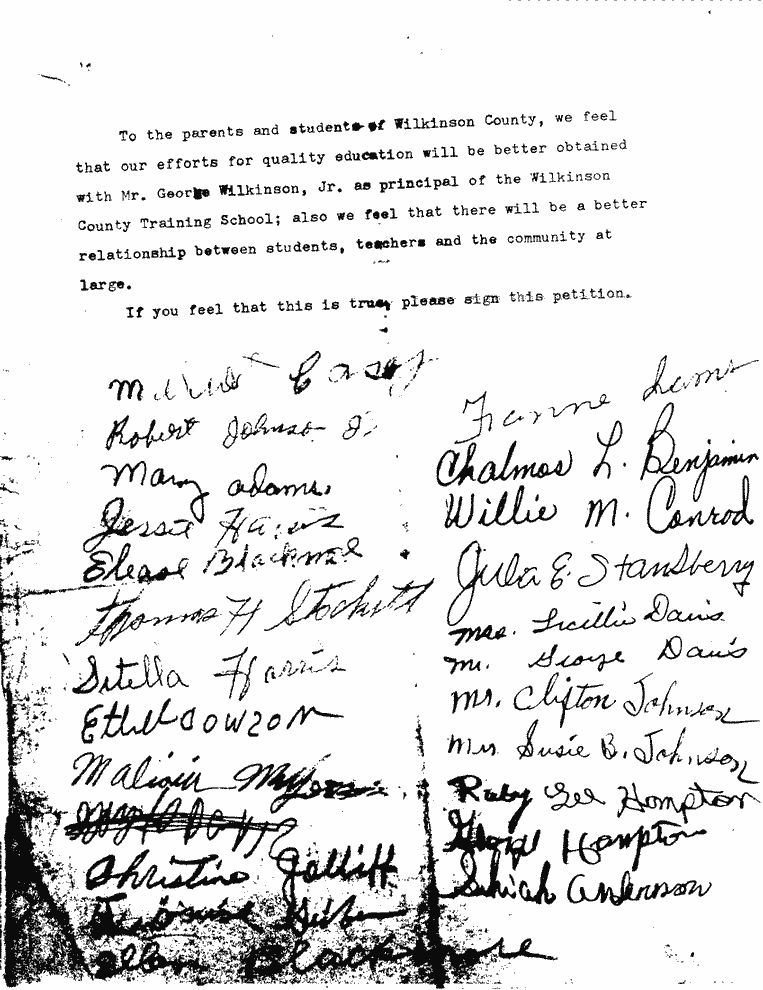 To the parents and students of Wilkinson County, we feel
that our efforts for quality education will be better obtained
with Mr. George Wilkinson, Jr. as principal of the Wilkinson
County Training School; also we feel that there will be a better
relationship between students, teachers and the community at
large.
If you feel that this is true, please sign this petition.
Casey
Robert Johnson Jr.
Mary Adams
Jessie Harris
Elease Blackmore
Thomas H Stockett
Sstella Harris
Ethel Dowzon
Myers
Christine Jolliff
Blackmore
Chalmos L. Benjamin
Willie M. Conrod
Julia E. Stansberry
Mrs. Lucillie Davis
Mr. George Davis
Mr. Clifton Johnson
Mrs Susie B. Johnson
Ruby Gee Hompton
George Hampton
Anderson